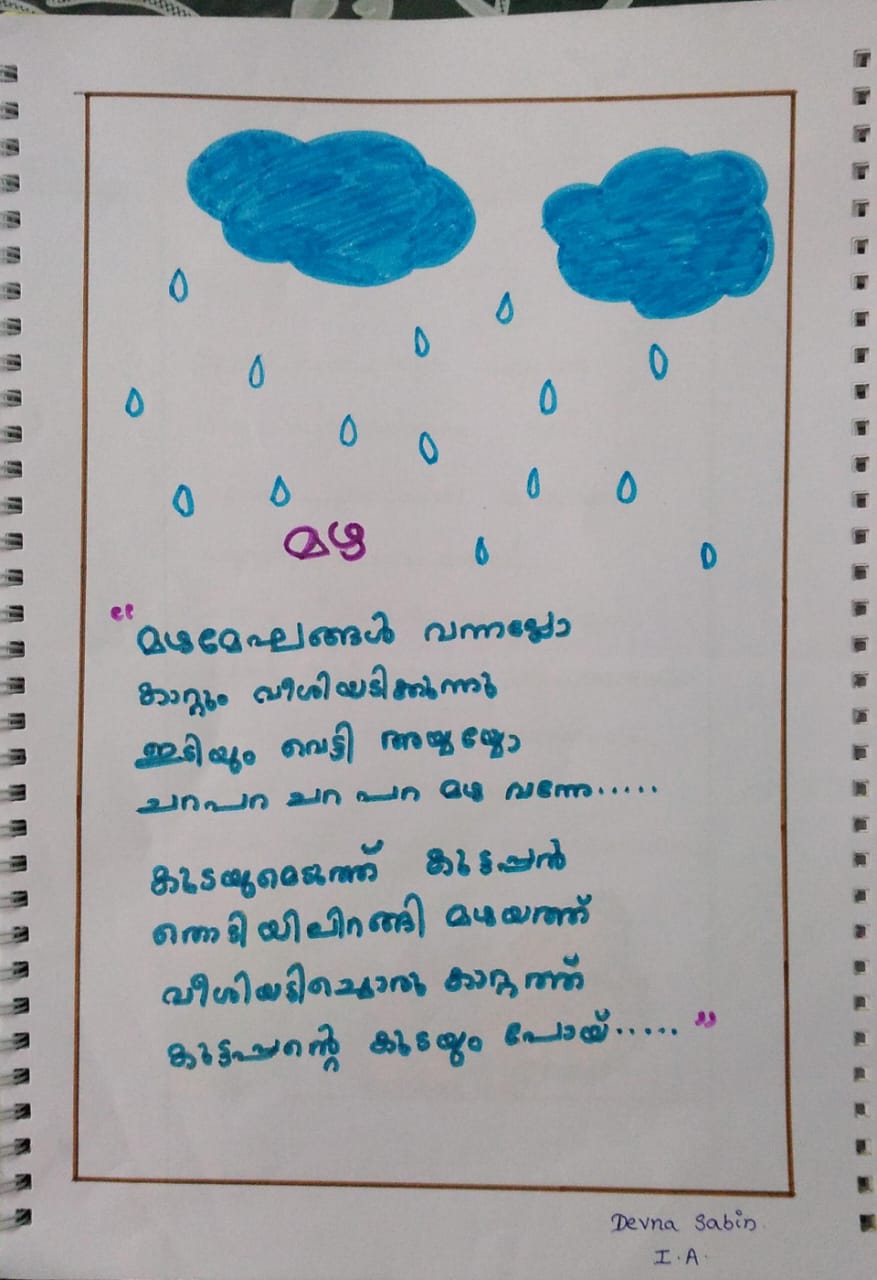 മഴ
"മഴമേഘങ്ങൾ വന്നല്ലോ
കാറ്റും വീശിയടിക്കുന്നു
ഇടിയും വെട്ടി അയ്യയ്യോ
ചറപറ ചറ പറ മഴ വന്നേ.....
കുടയുമെടുത്ത് കുട്ടപ്പൻ
തൊടിയിലിറങ്ങി മഴയത്ത്
വീശിയടിച്ചൊരു കാറ്റത്ത്
കുട്ടപ്പന്റെ കുടയും പോയ്....."
Devna Sabin.
I.A.